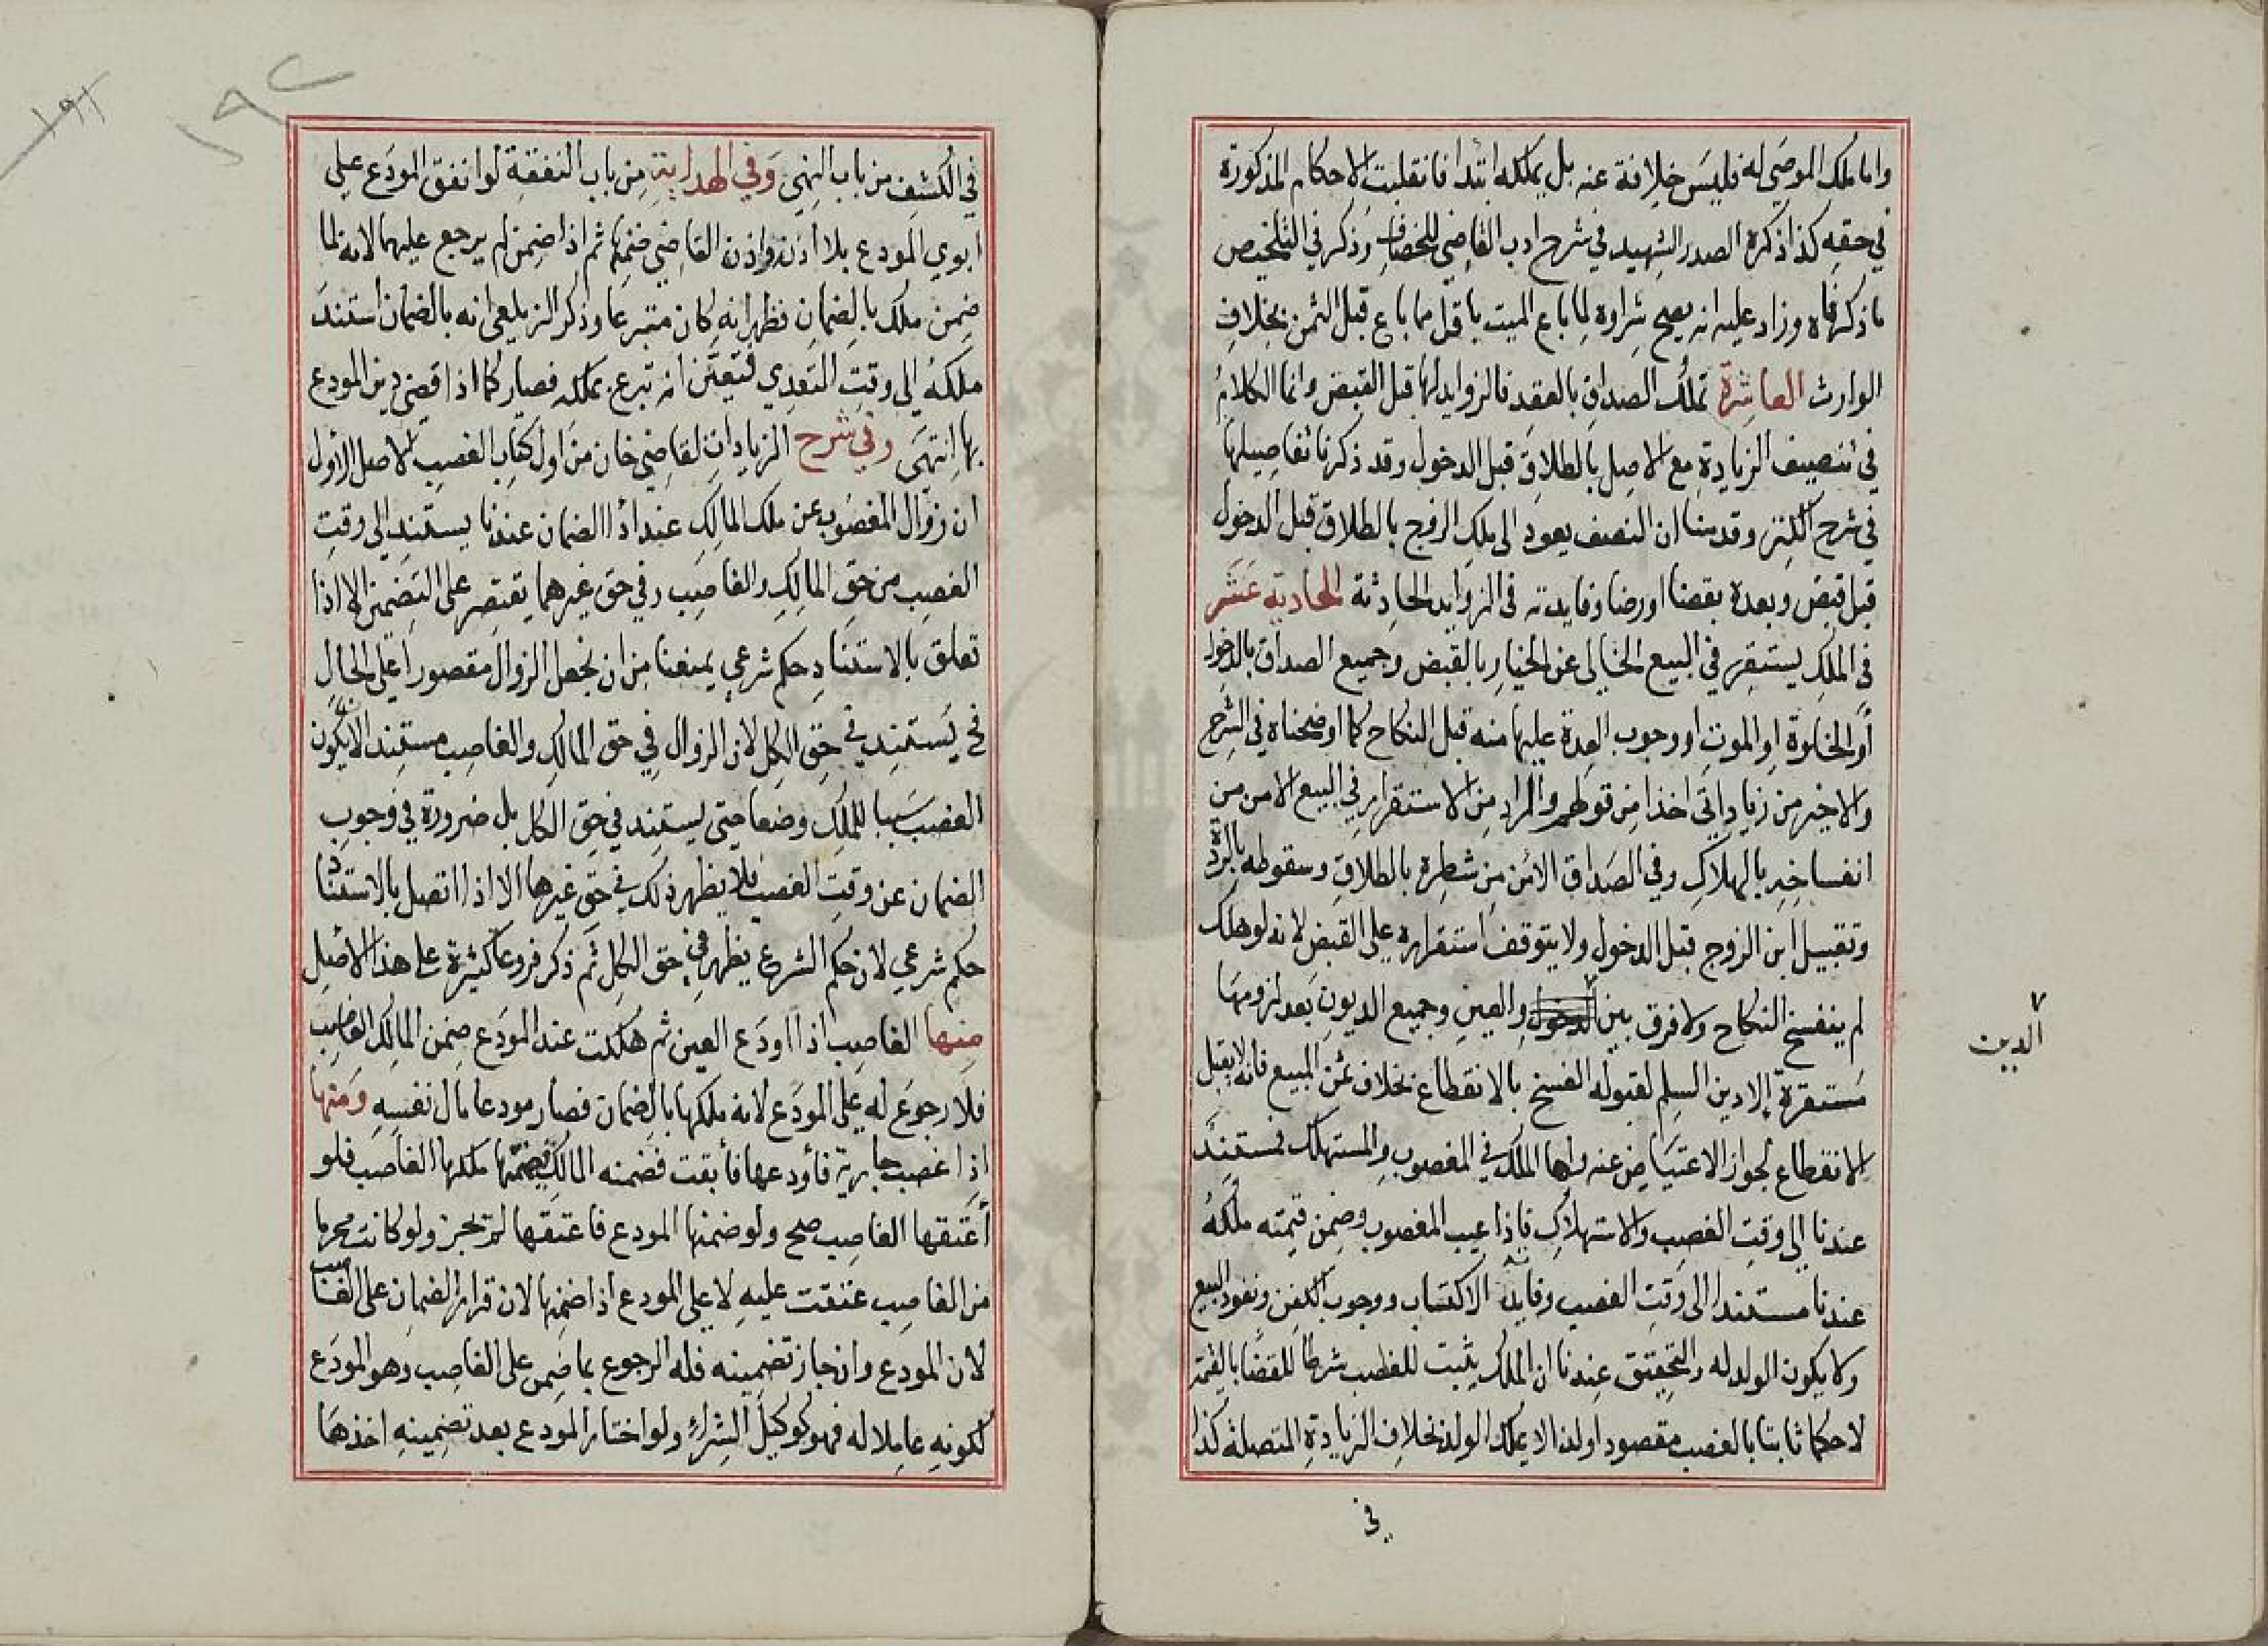 واما ملك الموصى له فليس خلافة عنه بل يملكه ابتدا فانقلبت الاحكام المذكورة
في حقه كذا ذكره الصدر الشهيد في شرح ادب القاضي للخصاف وذكر في التلخيص
ما ذكرناه وزاد عليه انه يصح شراوه لما باع الميت باقل مما باع قبل الثمن بخلاف
الوارث العاشرة تملك الصداق بالعقد فالزوايد لها قبل القبض وانما الكلام
في تنصيف الزيادة مع الاصل بالطلاق قبل الدخول وقد ذكرنا تفاصيلها
في شرح الكنز وقدمنا ان النصف يعود الى ملك الزوج بالطلاق قبل الدخول
قبل قبض وبعده بقضا او رضا وفايدته في الزوايد الحادثة الحادية عشر
في الملك يستقر في البيع الخالي عن الخيار بالقبض وجميع الصداق بالدخول
أو الخلوة او الموت او وجوب العدة عليها منه قبل النكاح كما اوضحناه في الشرح
والاخير من زياداتي اخذا من قولهم والمراد من الاستقرار في البيع الامن من
انفساخه بالهلاك وفي الصداق الامن من شطره بالطلاق وسقوطه بالردة
وتقبيل ابن الزوج قبل الدخول ولا يتوقف استقراره على القبض لانه لو هلك
لم ينفسخ النكاح ولا فرق بين الدخول والعين وجميع الديون بعد لزومها
الدين
مستقرة الا دين السلم لقبوله الفسخ بالانقطاع بخلاف ثمن المبيع فانه لا يقبل
بالانقطاع لجواز الاعتياض عنه واما الملك في المغصوب والمستهلك فمستند
عندنا الى وقت الغصب والاستهلاك فاذا عيب المغصوب وضمن قيمته ملكه
عندنا مستندا الى وقت الغصب وفايدته الاكتساب ووجوب الكفن ونفوذ البيع
ولا يكون الولد له والتحقيق عندنا ان الملك يثبت للغصب شرطا للقضا بالقيمة
لا حكما ثابتا بالغصب مقصودا ولذا لا يملك الولد بخلاف الزيادة المتصلة كذا
في
١٩٢
١٩١
في الكشف من باب النهي وفي الهداية من باب النفقة لو انفق المودع على
ابوي المودع بلا اذنه واذن القاضي ضمنها ثم اذا ضمن لم يرجع عليهما لانه لما
ضمن ملك بالضمان فظهر انه كان متبرعا وذكر الزيلعي انه بالضمان استند
ملكه الى وقت التعدي فتبين انه تبرع بملكه فصار كما اذا قضى دين المودع
بها انتهى وفي شرح الزيادات لقاضي خان من اول كتاب الغصب الاصل الاول
ان زوال المغصوب عن ملك المالك عند اذا الضمان عندنا يستند الى وقت
الغصب من حق المالك والغاصب وفي حق غيرهما يقتصر على التضمين الا اذا
تعلق بالاستناد حكم شرعي يمنعنا من ان نجعل الزوال مقصورا على الحال
فح يستند في حق الكل لان الزوال في حق المالك والغاصب مستند الا يكون
الغصب سببا للملك وضعا حتى يستند في حق الكل بل ضرورة في وجوب
الضمان عن وقت الغصب فلا يظهر ذلك في حق غيرها الا اذا اتصل بالاستناد
حكم شرعي لان حكم الشرع يظهر في حق الكل ثم ذكر فروعا كثيرة على هذا الاصل
منها الغاصب اذا اودع العين ثم هلكت عند المودع ضمن المالك الغاصب
فلا رجوع له على المودع لانه ملكها بالضمان فصار مودعا مال نفسه ومنها
اذا غصب جارية فأودعها فأبقت فضمنه المالك قيمتها ملكها الغاصب فلو
أعتقها الغاصب صح ولو ضمنها المودع فاعتقها لم تجز ولو كانت محرما
من الغاصب عتقت عليه لا على المودع اذا ضمنها لان قرار الضمان على الغاصب
لان المودع وان جاز تضمينه فله الرجوع بما ضمن على الغاصب وهو المودع
لكونه عاملا له فهو كوكيل الشراء ولو اختار المودع بعد تضمينه اخذها